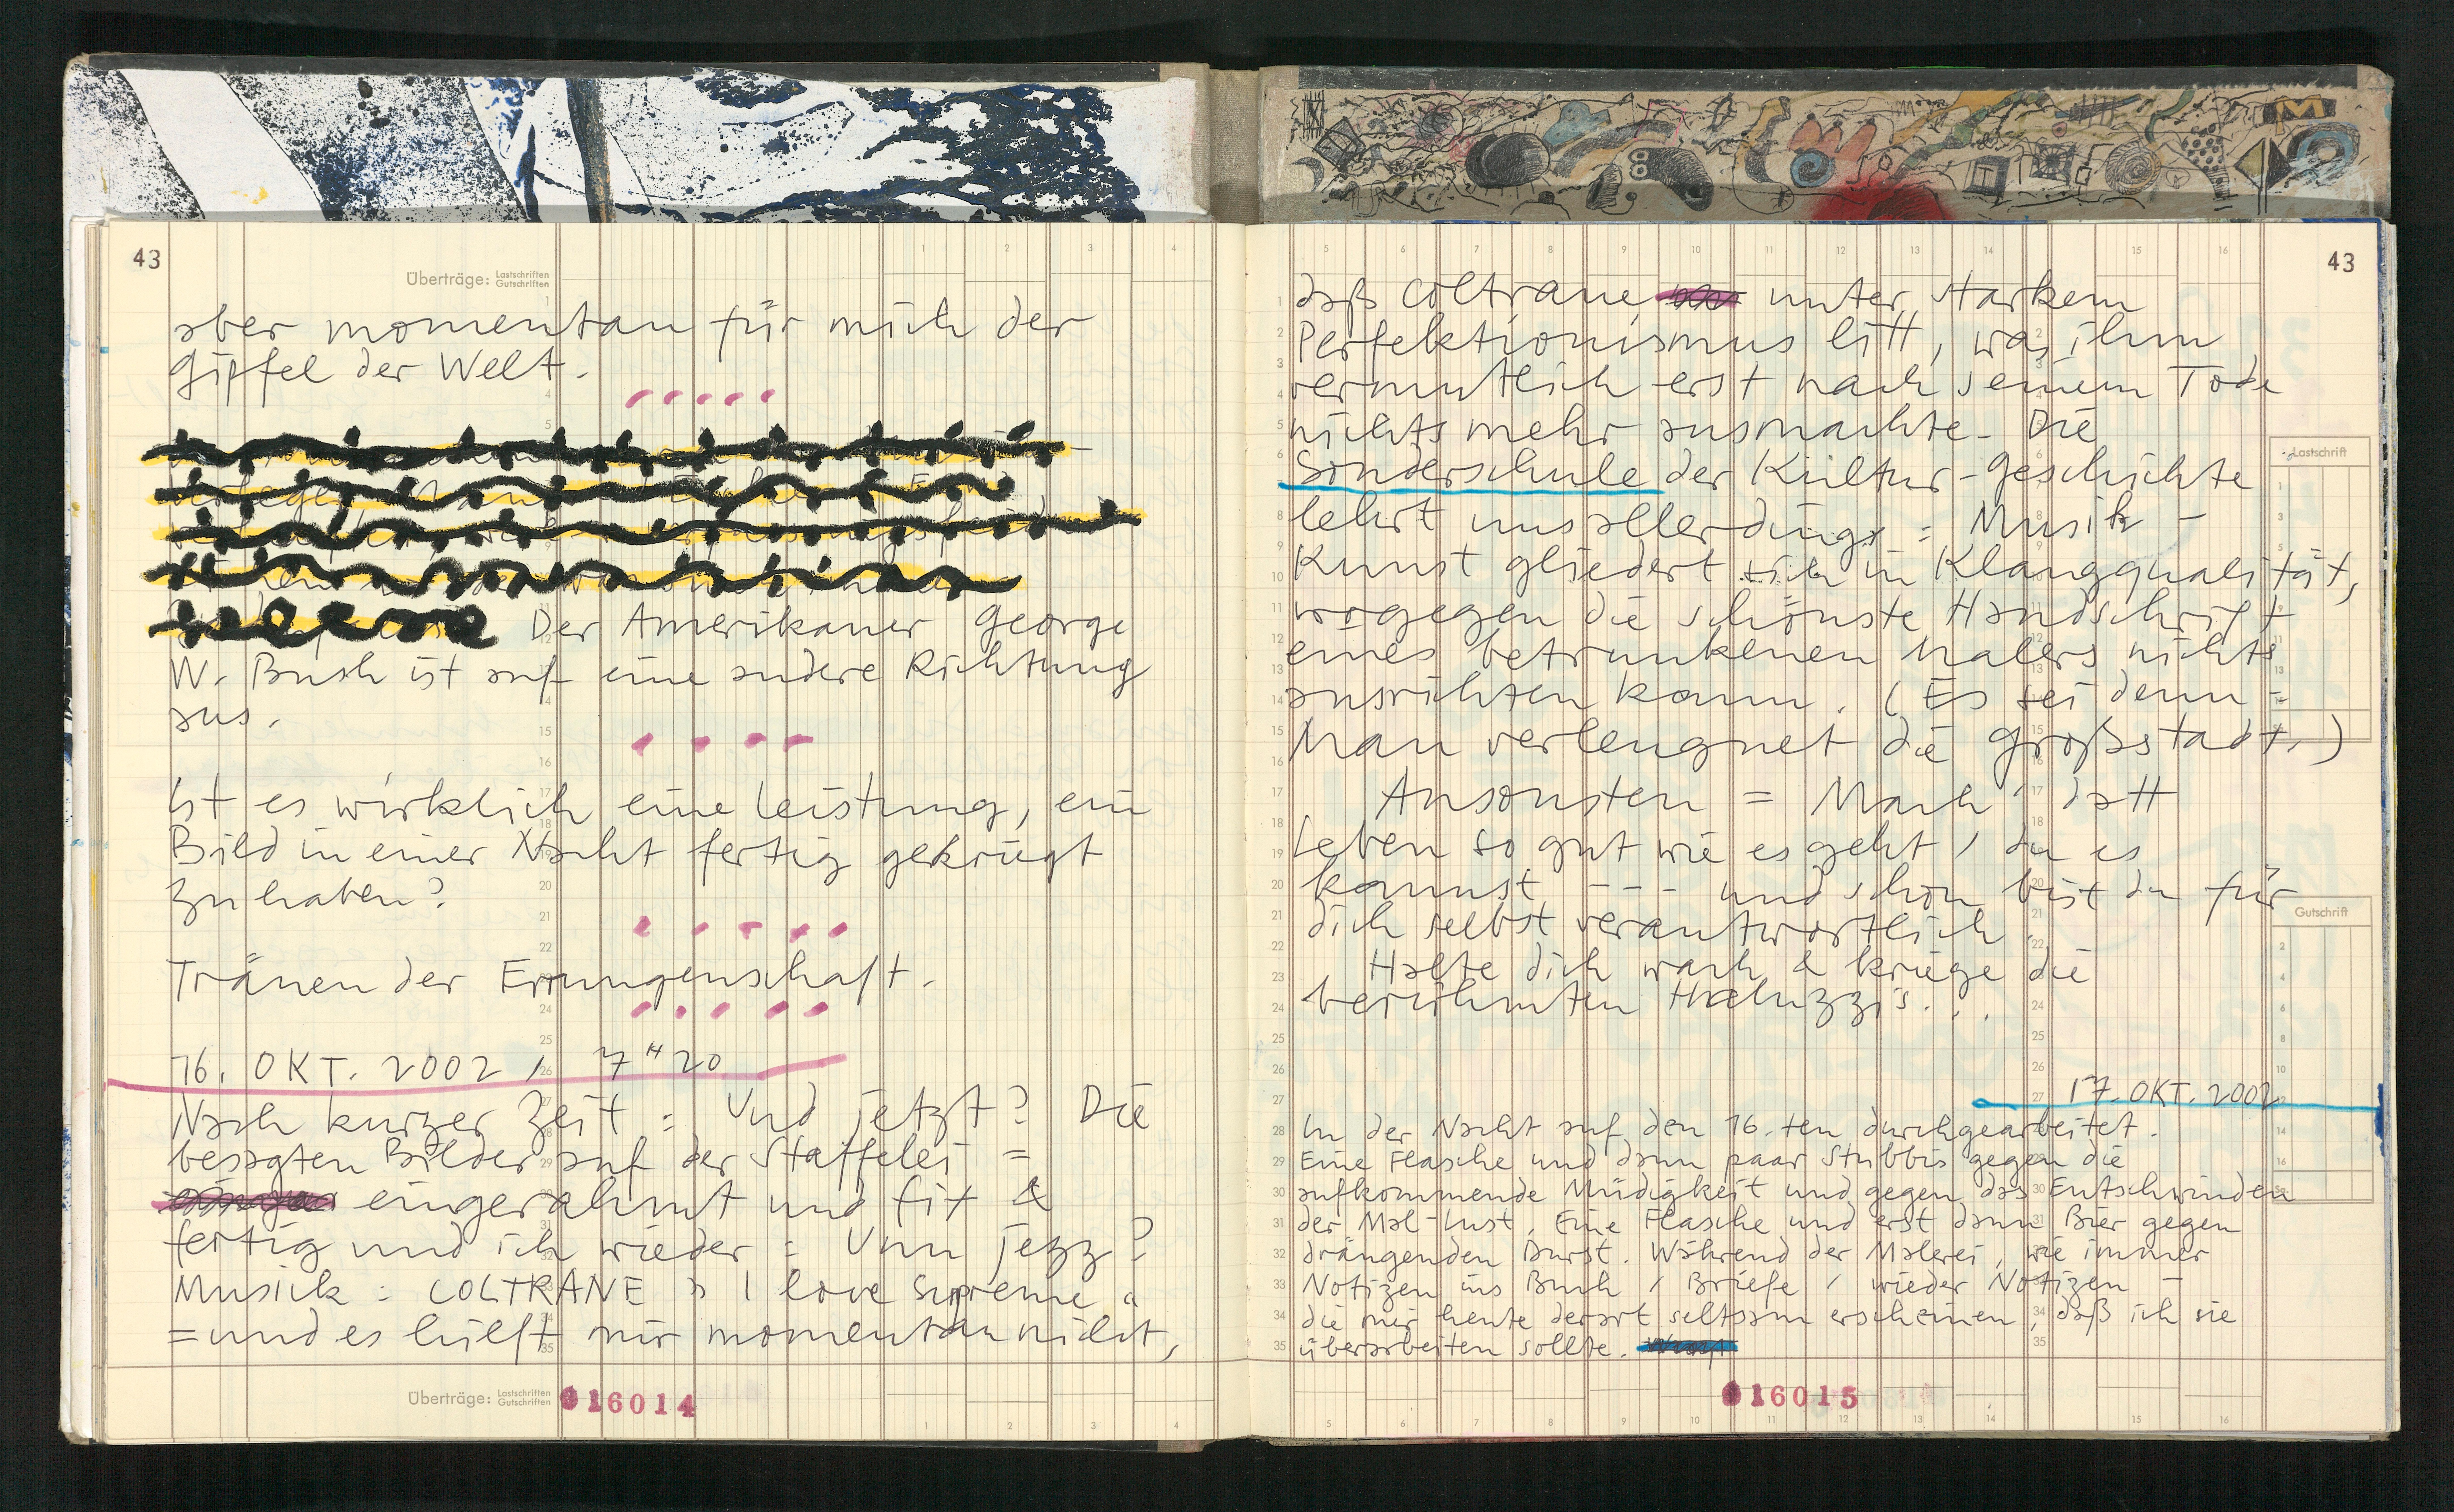 43
Überträge: Lastschriften Gutschriften
aber momentan für mich der
Gipfel der Welt.
Der Amerikaner George
W. Bush ist auf eine andere Richtung
aus.
Ist es wirklich eine Leistung, ein
Bild in einer Nacht fertig gekriegt
zu haben?
Tränen der Errungenschaft.
16. OKT. 2002, 7 H 20
Nach kurzer Zeit = Und jetzt? Die
besagten Bilder auf der Staffelei =
eingerahmt und fix &
fertig und ich wieder = Unn jezz?
Musick : COLTRANE » I love Supreme «
= und es hilft mir momentan nicht,
Überträge: Lastschriften Gutschriften
016014
43
daß Coltrane unter starkem
Perfektionismus litt, was ihm
vermutlich erst nach seinem Tode
nichts mehr ausmachte. Die
Sonderschule der Kültur-Geschichte
lehrt uns allerdings = Musik -
Kunst gliedert sich in Klangqualität,
wogegen die schönste Handschrift
eines betrunkenen Malers nichts
ausrichten kann. (Es sei denn =
Man verleugnet die Großstadt.)
Ansonsten = Mach' datt
Leben so gut wie es geht / du es
kannst --- und schon bist du für
dich selbst verantwortlich.
Halte dich wach & kriege die
berühmten Haluzzi's...
17. OKT. 2002
In der Nacht auf den 16.ten durchgearbeitet.
Eine Flasche und dann paar Stubbis gegen die
aufkommende Müdigkeit und gegen das Entschwinden
der Mal-Lust. Eine Flasche und erst dann Bier gegen
drängenden Durst. Während der Malerei, wie immer
Notizen ins Buch / Briefe / wieder Notizen -
die mir heute derart seltsam erscheinen, daß ich sie
überarbeiten sollte.
Lastschrift
Gutschrift
016015